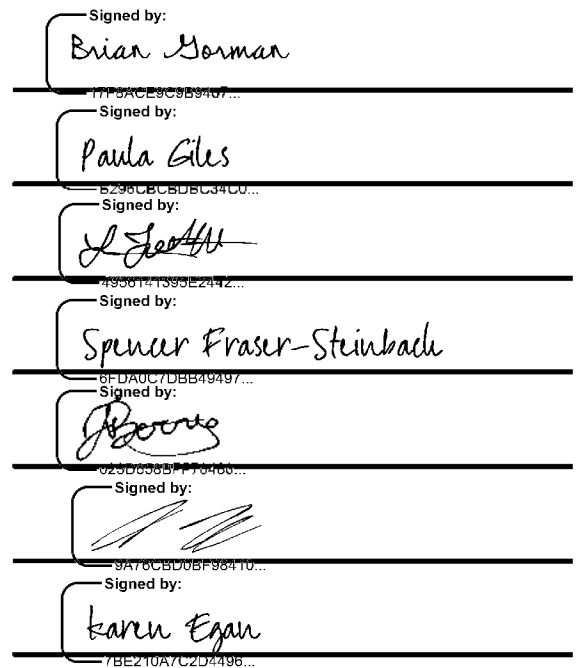 Signed by:
Brian Gorman
17F8ACE9C9B9407...
Signed by:
Paula Giles
B296CBCBDBC34C0...
Signed by:
4956141395E2442...
Signed by:
Spencer Fraser-Steinbach
6FDA0C7DBB49497...
Signed by:
Signed by:
9A76CBD0BF98410...
Signed by:
karen Egan
7BE210A7C2D4496...